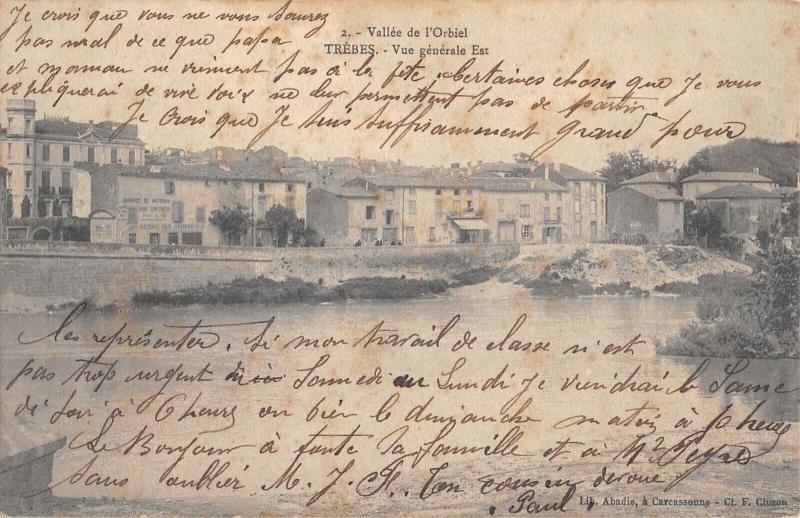 Je crois que vous ne vous saurez
pas mal de ce que papa
et maman ne viennent pas à la fête. Certaines choses que Je vous
expliquerai de vive voix ne leur permettent pas de partir
Je crois que Je suis suffisamment grand pour
2. - Vallée de l'Orbiel
TRÈBES. - Vue générale Est
ENTREPOT DE MATERIAUX
les représenter. Si mon travail de classe n'est
pas trop urgent Samedi au Lundi Je viendrai le Same
di soir à 6 heures ou bien le dimanche matin à heures
Le Bonjour à toute la famille et à Mr Peyre
sans oublier M. J. F. Ton cousin dévoué
Paul
Lib. Abadie, à Carcassonne - Cl. F. Cluzon